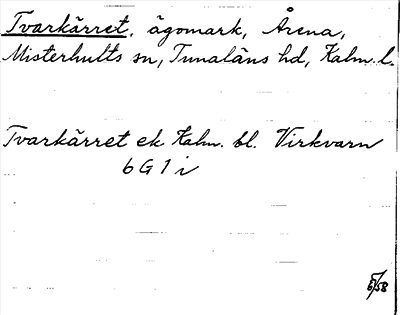 Tvarkärret, ägomark, Årena,
Misterhults sn, Tunaläns hd, Kalm. l.
Tvarkärret ek. Kalm. bl. Virkvarn
6 G 1 i
5/58